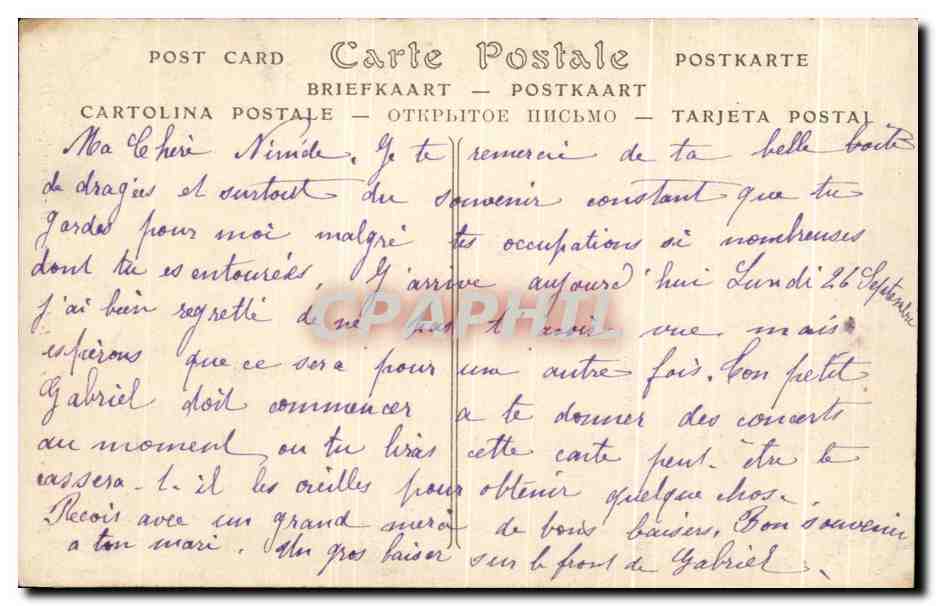 POST CARD Carte Postale POSTKARTE
BRIEFKAART — POSTKAART
CARTOLINA POSTALE — ОТКРЫТОЕ ПИСЬМО — TARJETA POSTAL
Ma Chère Ninide. Je te remercie de ta belle boîte
de dragées et surtout du souvenir constant que tu
gardes pour moi malgré tes occupations si nombreuses
dont tu es entourées. J'arrive aujourd'hui Lundi 26 Septembre
j'ai bien regretté de ne pas t'avoir vue mais
espérons que ce sera pour une autre fois. Ton petit
Gabriel doit commencer a te donner des concerts
au moment ou tu liras cette carte peut-être te
cassera-t-il les oreilles pour obtenir quelque chose.
Reçois avec un grand merci de bons baisers. Bon souvenir
a ton mari. Un gros baiser sur le front de Gabriel.
CPAPHIL